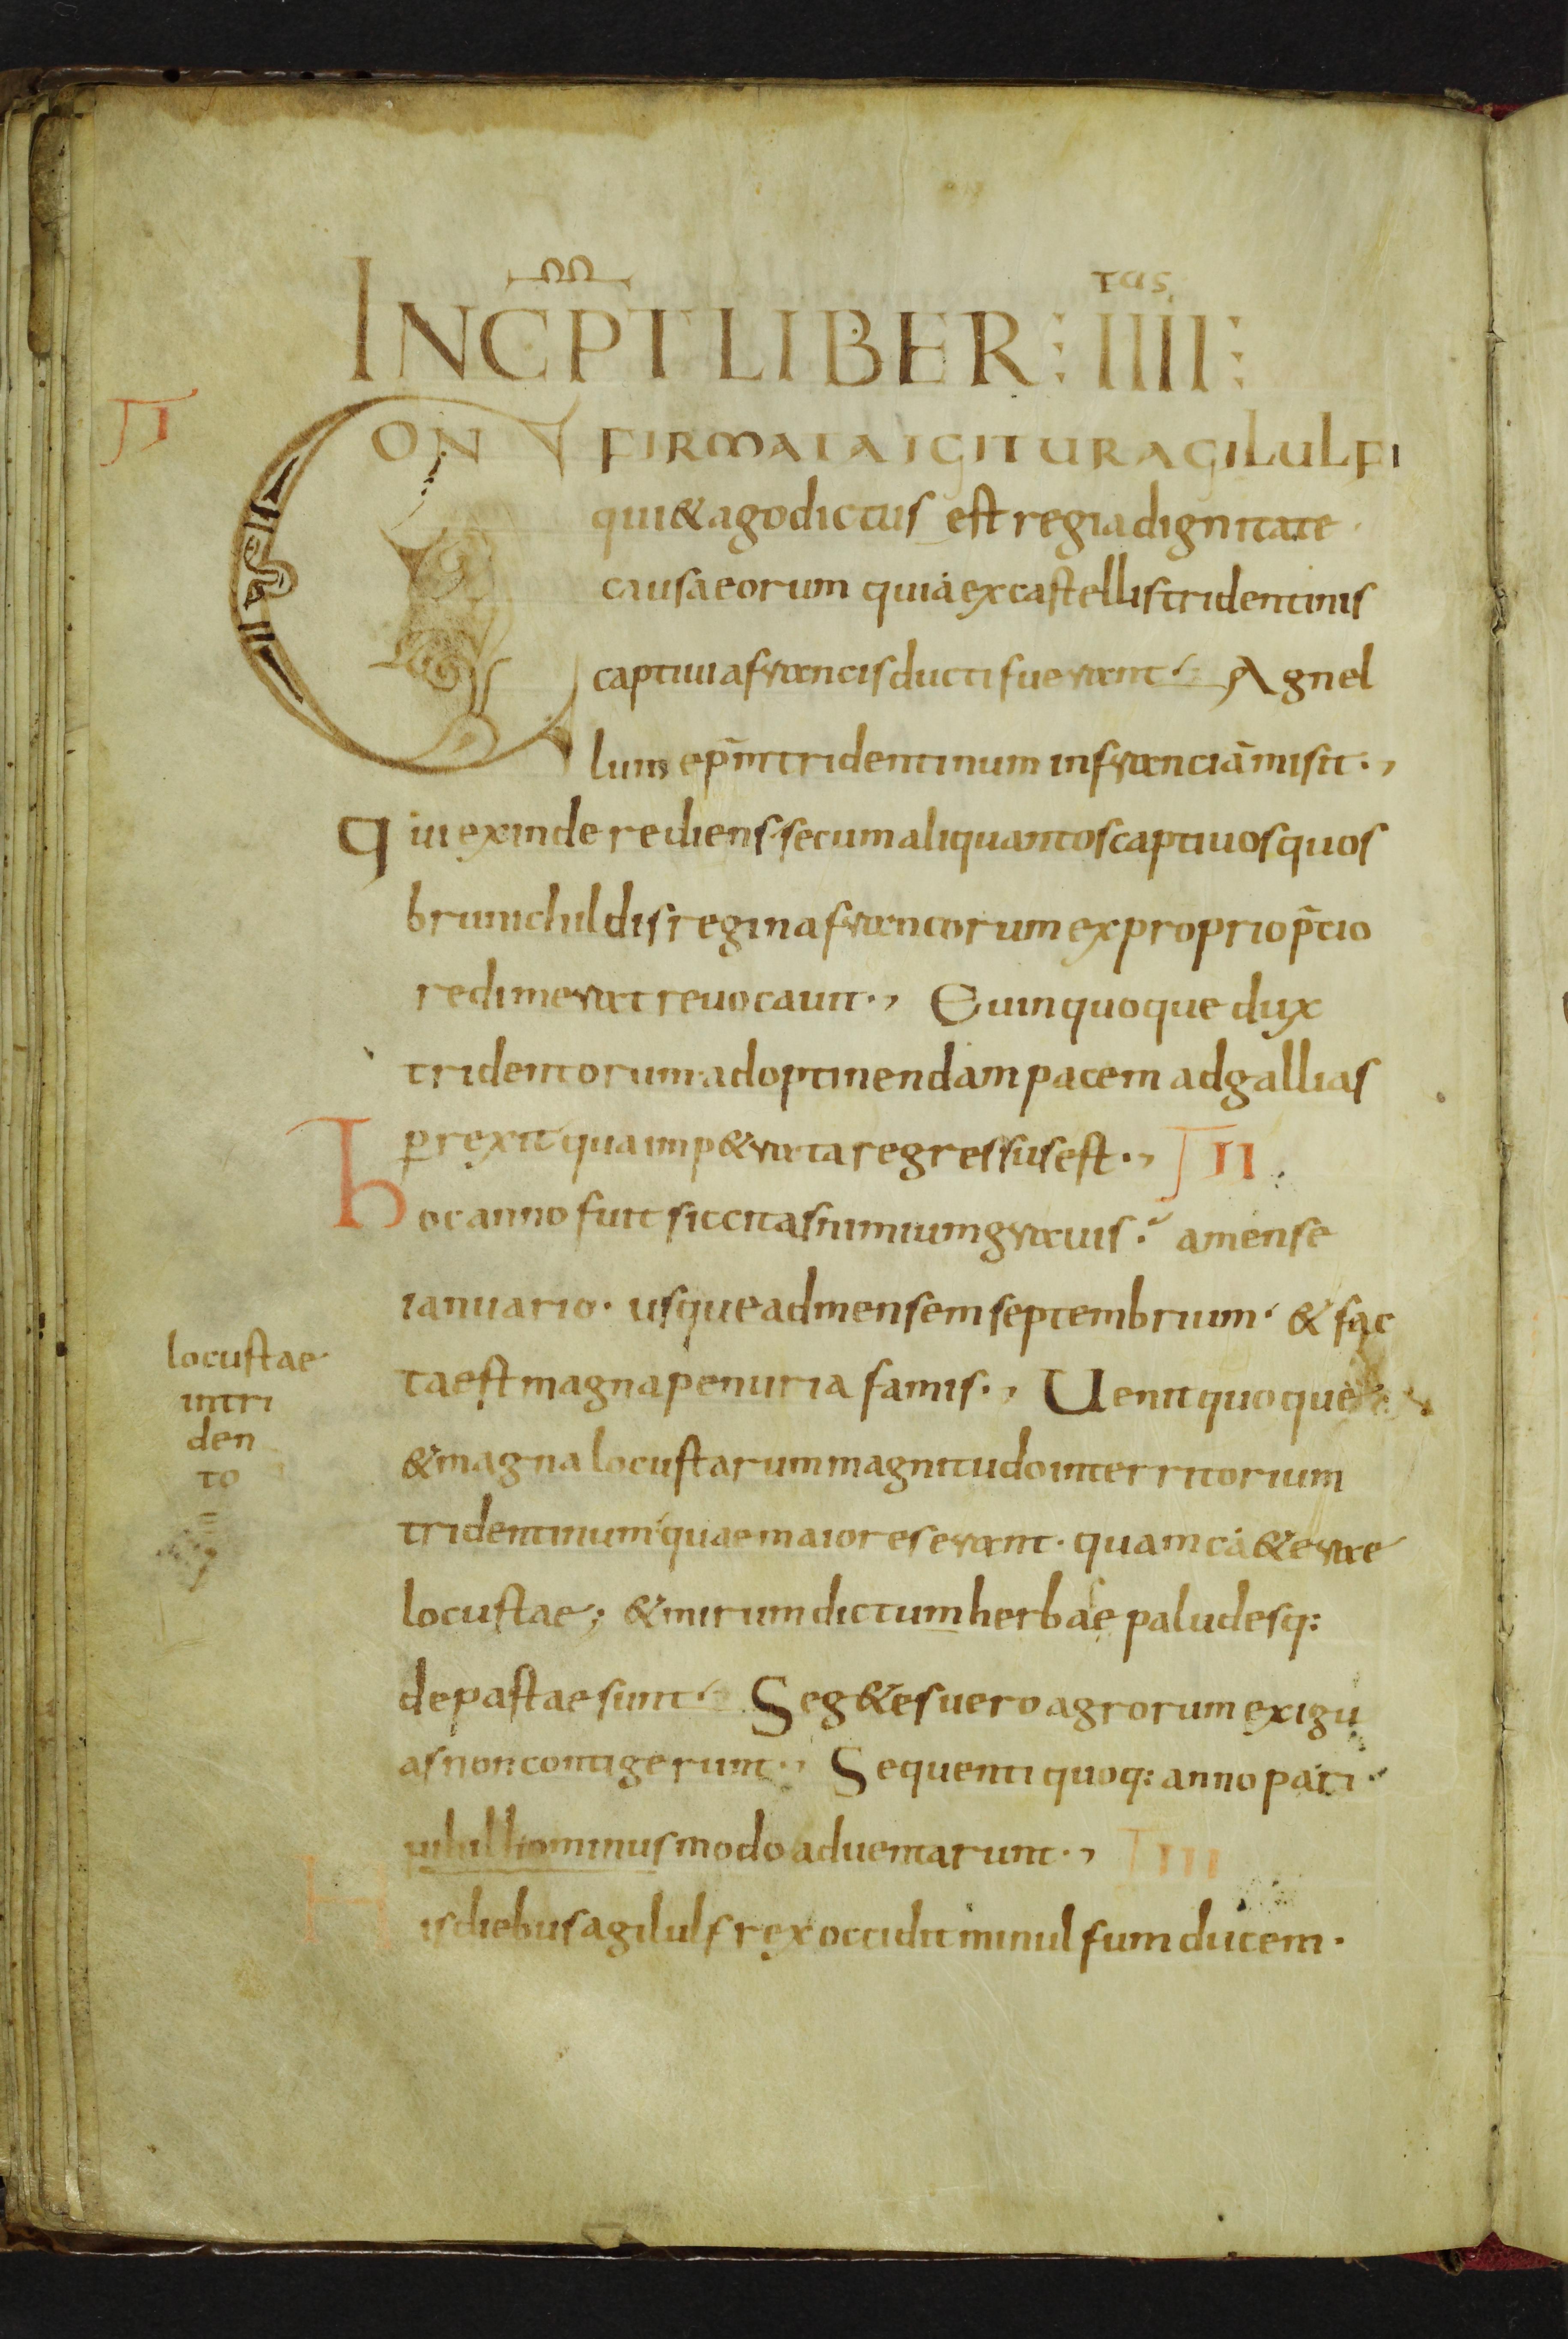 INCP̄T LIBER : IIII :
tus
I
CON FIRMATA IGITUR AGILULFI
qui & ago dictus est regia dignitate
causa eorum quia ex castellis tridentinis
captiui a francis ducti fuerant · Agnel
lum ep̄m tridentinum in franciā misit ·,
Qui exinde rediens · secum aliquantos captiuos quos
brunichildis regina francorum ex proprio p̄tio
redimerat reuocauit ·, Euin quoque dux
tridentorum ad optinendam pacem ad gallias
ꝑrexit qua imp&rata regressus est ·, II
hoc anno fuit siccitas nimium grauis · a mense
ianuario · usque ad mensem septembrium · & fac
ta est magna penuria famis ·, Uenit quoque
& magna locustarum magnitudo in territorium
tridentinum quae maiores erant · quam c& erae
locustae; & mirum dictum herbae paludesq:
depastae sunt · Seg&es uero agrorum exigu
as non contigerunt ·, Sequenti quoq: anno pari
nihilhominus modo aduentarunt ·, III
His diebus agilulf rex occidit minulfum ducem ·
locustae
in tri
den
to